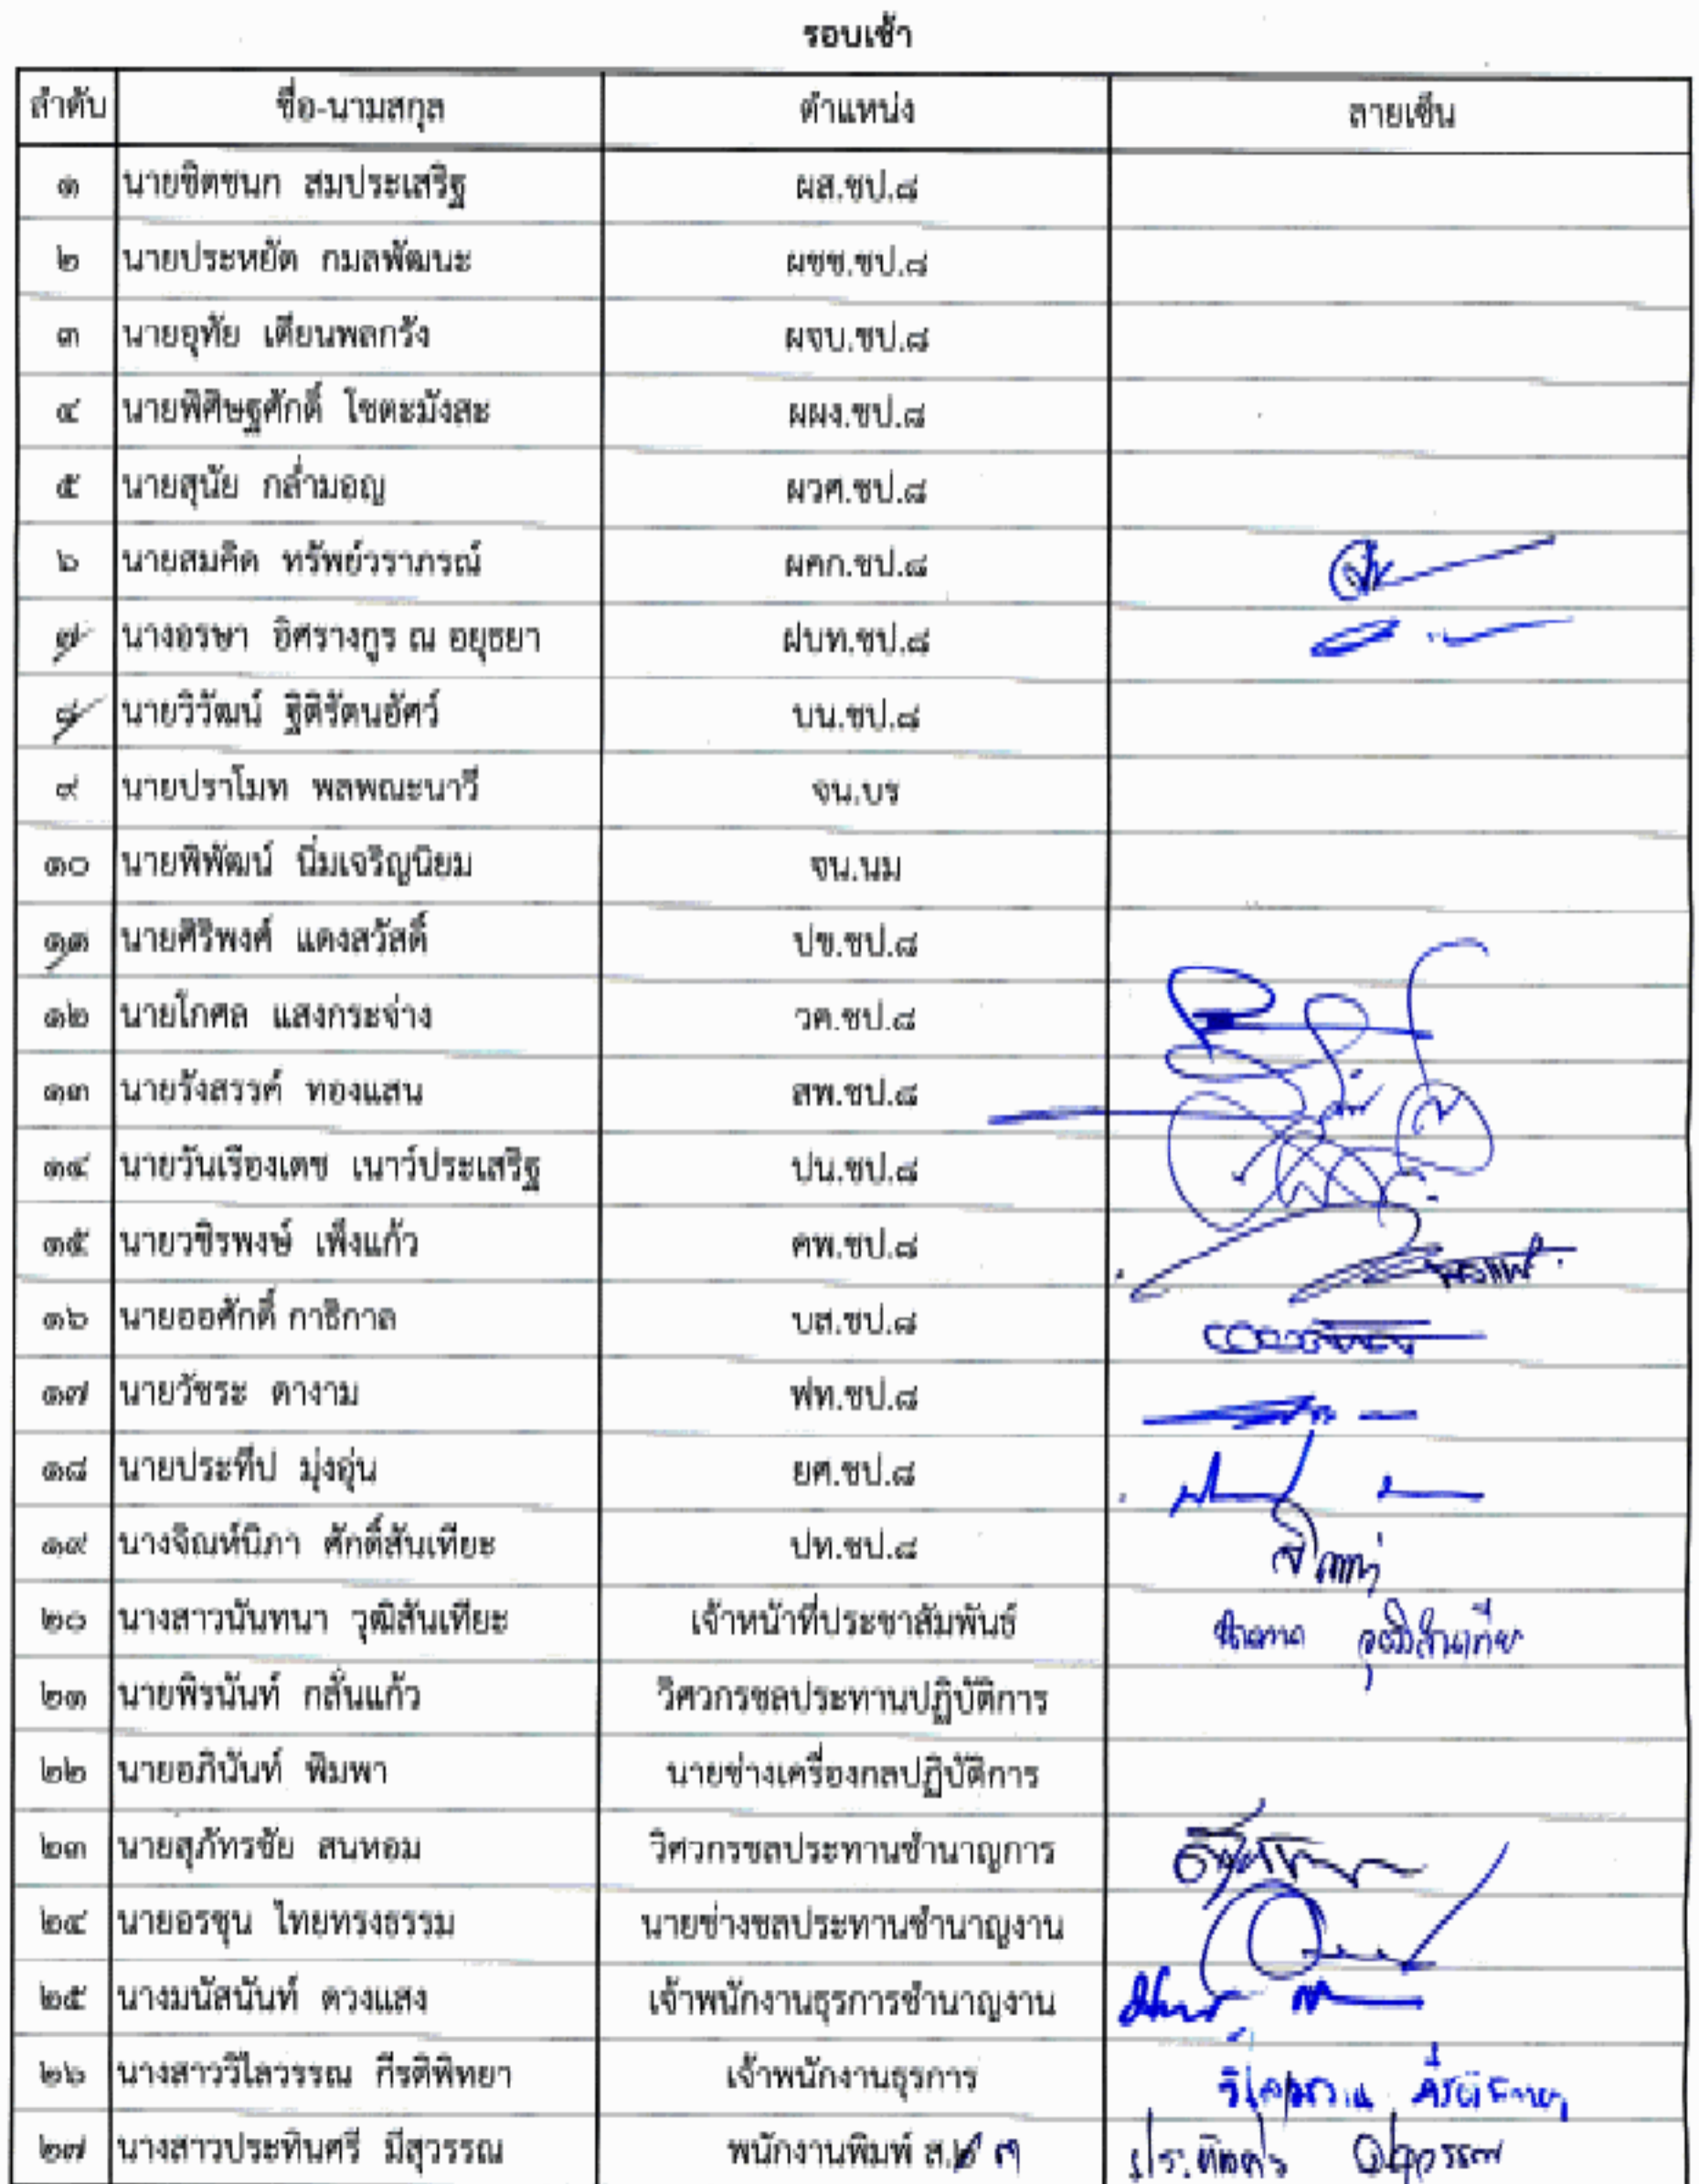 รอบเช้า
ลำดับ ชื่อ-นามสกุล ตำแหน่ง ลายเซ็น
๑ นายชิตชนก สมประเสริฐ ผส.ชป.๘
๒ นายประหยัด กมลพัฒนะ ผชช.ชป.๘
๓ นายอุทัย เตียนพลกรัง ผจบ.ชป.๘
๔ นายพิศิษฐศักดิ์ โชตะมังสะ ผผง.ชป.๘
๕ นายสุนัย กล่ำมอญ ผวศ.ชป.๘
๖ นายสมคิด ทรัพย์วราภรณ์ ผคก.ชป.๘
๗ นางอรษา อิศรางกูร ณ อยุธยา ฝบท.ชป.๘
๘ นายวิวัฒน์ ฐิติรัตนอัศว์ บน.ชป.๘
๙ นายปราโมท พลพณะนาวี จน.บร
๑๐ นายพิพัฒน์ นิ่มเจริญนิยม จน.นม
๑๑ นายศิริพงศ์ แดงสวัสดิ์ ปข.ชป.๘
๑๒ นายโกศล แสงกระจ่าง วศ.ชป.๘
๑๓ นายรังสรรค์ ทองแสน สพ.ชป.๘
๑๔ นายวันเรืองเดช เนาว์ประเสริฐ ปน.ชป.๘
๑๕ นายวชิรพงษ์ เพ็งแก้ว คพ.ชป.๘
๑๖ นายออศักดิ์ กาธิกาล บส.ชป.๘
๑๗ นายวัชระ ตางาม ฟท.ชป.๘
๑๘ นายประทีป มุ่งอุ่น ยศ.ชป.๘
๑๙ นางจิณห์นิภา ศักดิ์สันเทียะ ปท.ชป.๘
๒๐ นางสาวนันทนา วุฒิสันเทียะ เจ้าหน้าที่ประชาสัมพันธ์
๒๑ นายพิรนันท์ กลั่นแก้ว วิศวกรชลประทานปฏิบัติการ
๒๒ นายอภินันท์ พิมพา นายช่างเครื่องกลปฏิบัติการ
๒๓ นายสุภัทรชัย สนหอม วิศวกรชลประทานชำนาญการ
๒๔ นายอรชุน ไทยทรงธรรม นายช่างชลประทานชำนาญงาน
๒๕ นางมนัสนันท์ ดวงแสง เจ้าพนักงานธุรการชำนาญงาน
๒๖ นางสาววิไลวรรณ กีรติพิทยา เจ้าพนักงานธุรการ
๒๗ นางสาวประทินศรี มีสุวรรณ พนักงานพิมพ์ ส.๓